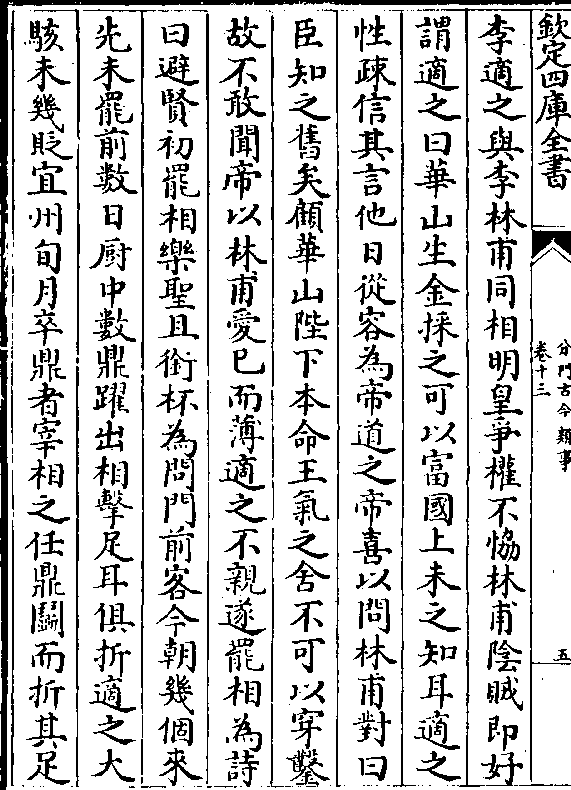 欽定四庫全書
分門古今類事
卷十三
五
李適之與李林甫同相明皇爭權不恊林甫陰賊即好
謂適之曰華山生金採之可以富國上未之知耳適之
性疎信其言他日從容為帝道之帝喜以問林甫對曰
臣知之舊矣顧華山陛下本命王氣之舍不可以穿鑿
故不敢聞帝以林甫愛已而薄適之不親遂罷相為詩
曰避賢初罷相樂聖且銜杯為問門前客今朝幾個來
先未罷前數日厨中數鼎躍出相擊足耳俱折適之大
駭未幾貶宜州旬月卒鼎者宰相之任鼎鬭而折其足